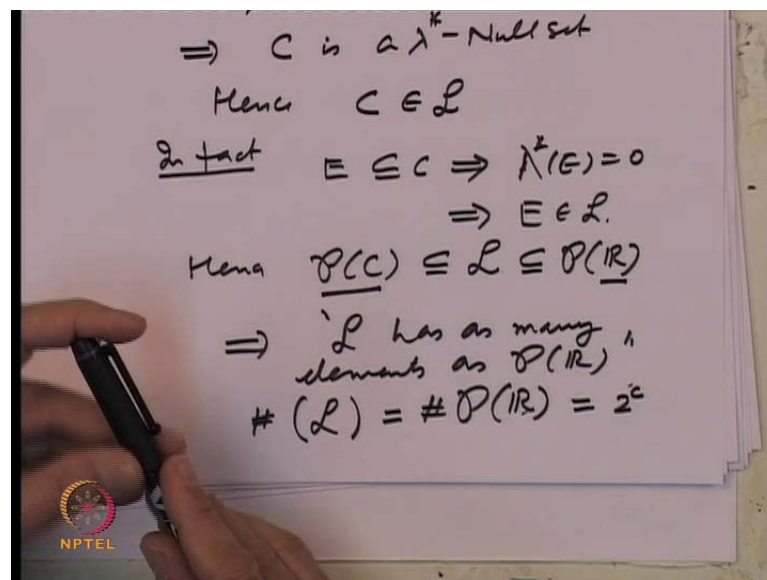 ⇒ C is a λ*-Null set
Hence C ∈ ℒ
In fact E ⊆ C ⇒ λ*(E) = 0
⇒ E ∈ ℒ.
Hence 𝒫(C) ⊆ ℒ ⊆ 𝒫(ℝ)
⇒ "ℒ has as many
elements as 𝒫(ℝ)"
# (ℒ) = # 𝒫(ℝ) = 2^c
NPTEL